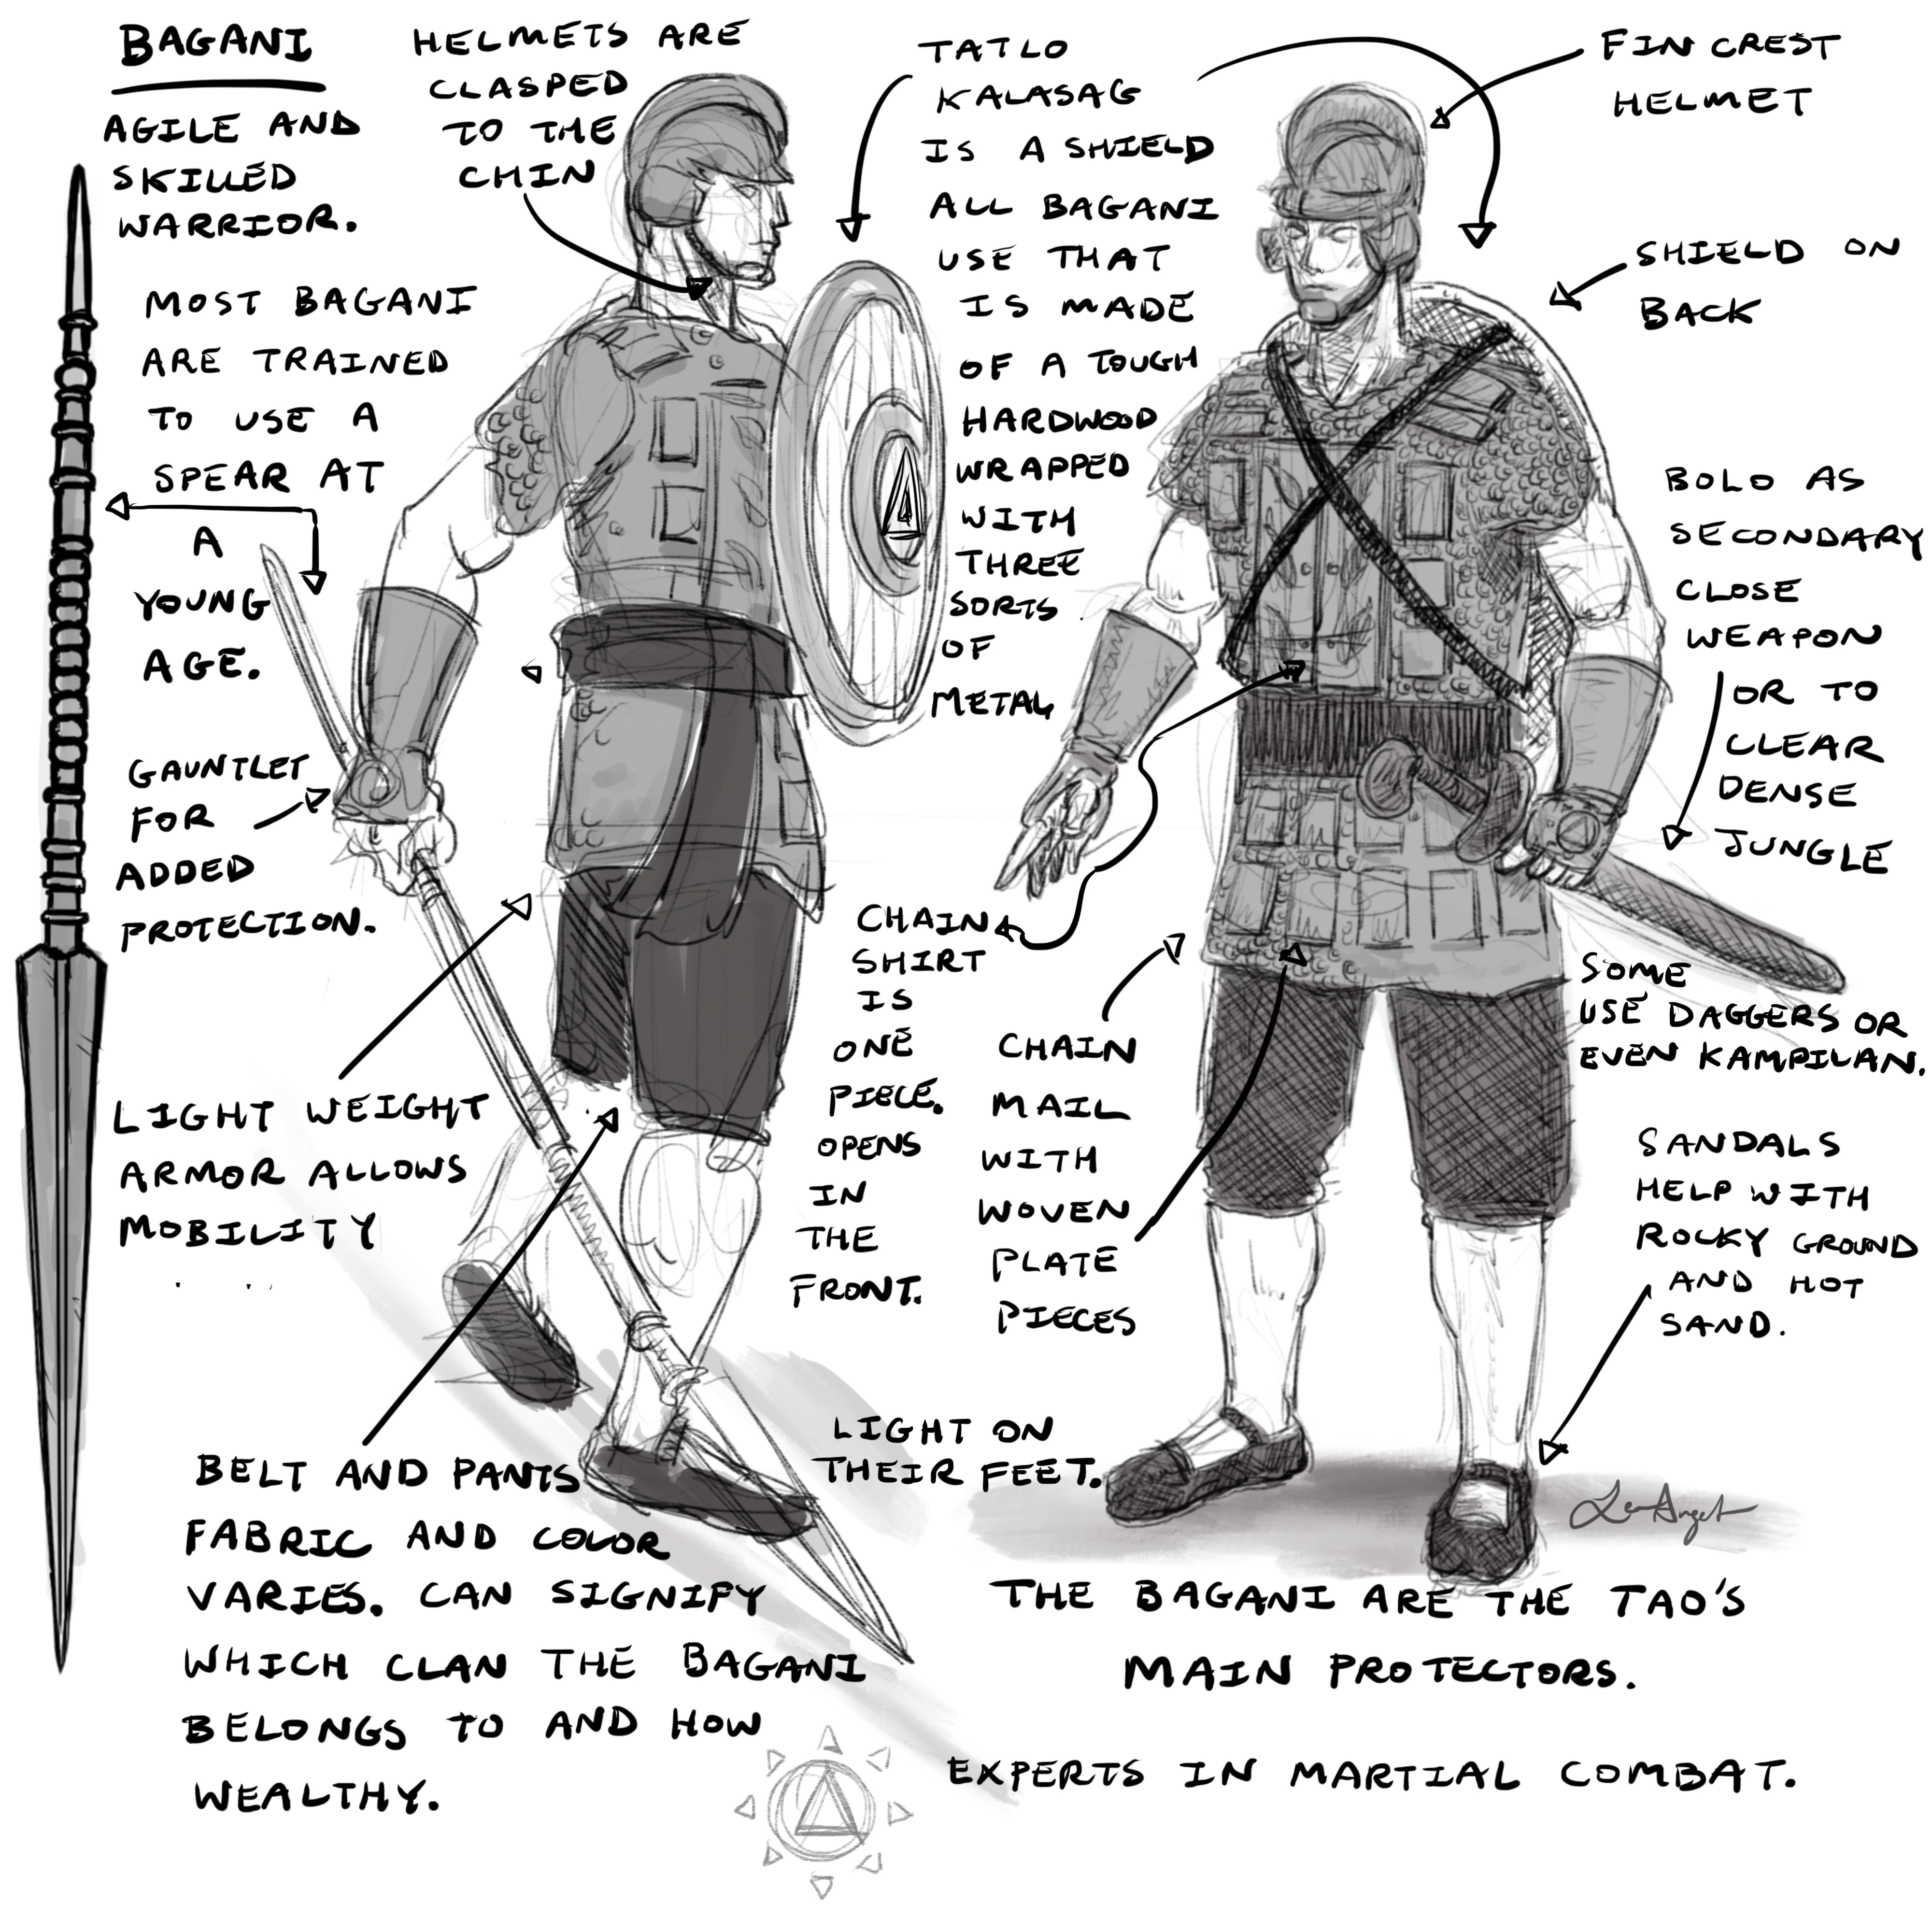 BAGANI
AGILE AND
SKILLED
WARRIOR.
MOST BAGANI
ARE TRAINED
TO USE A
SPEAR AT
A
YOUNG
AGE.
GAUNTLET
FOR
ADDED
PROTECTION.
LIGHT WEIGHT
ARMOR ALLOWS
MOBILITY
BELT AND PANTS
FABRIC AND COLOR
VARIES. CAN SIGNIFY
WHICH CLAN THE BAGANI
BELONGS TO AND HOW
WEALTHY.
HELMETS ARE
CLASPED
TO THE
CHIN
TATLO
KALASAG
IS A SHIELD
ALL BAGANI
USE THAT
IS MADE
OF A TOUGH
HARDWOOD
WRAPPED
WITH
THREE
SORTS
OF
METAL
CHAIN
SHIRT
IS
ONE
PIECE.
OPENS
IN
THE
FRONT.
CHAIN
MAIL
WITH
WOVEN
PLATE
PIECES
LIGHT ON
THEIR FEET.
FIN CREST
HELMET
SHIELD ON
BACK
BOLO AS
SECONDARY
CLOSE
WEAPON
OR TO
CLEAR
DENSE
JUNGLE
SOME
USE DAGGERS OR
EVEN KAMPILAN.
SANDALS
HELP WITH
ROCKY GROUND
AND HOT
SAND.
THE BAGANI ARE THE TAO'S
MAIN PROTECTORS.
EXPERTS IN MARTIAL COMBAT.